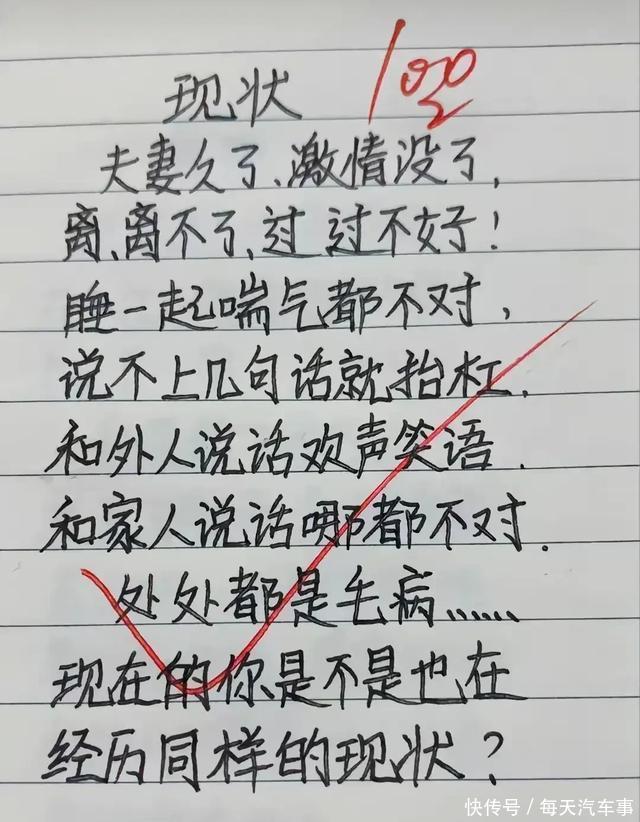 现状 100
夫妻久了、激情没了,
离、离不了,过 过不好!
睡一起喘气都不对,
说不上几句话就抬杠.
和外人说话欢声笑语.
和家人说话哪都不对.
处处都是毛病......
现在的你是不是也在
经历同样的现状?
快传号/每天汽车事